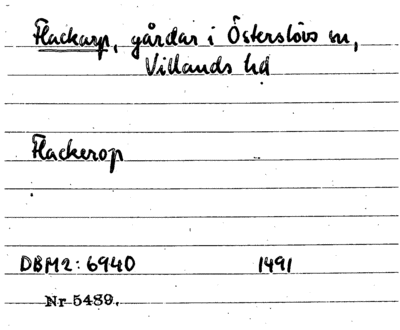 Flackarp, gårdar i Österslövs sn,
Villands hd
Flackerop
DBM2:6940 1491
Nr 5489.